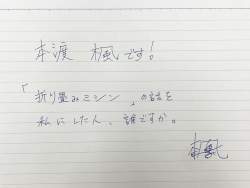 本渡 楓です！
「折り畳みミシン」の話を
私にした人、誰ですか。